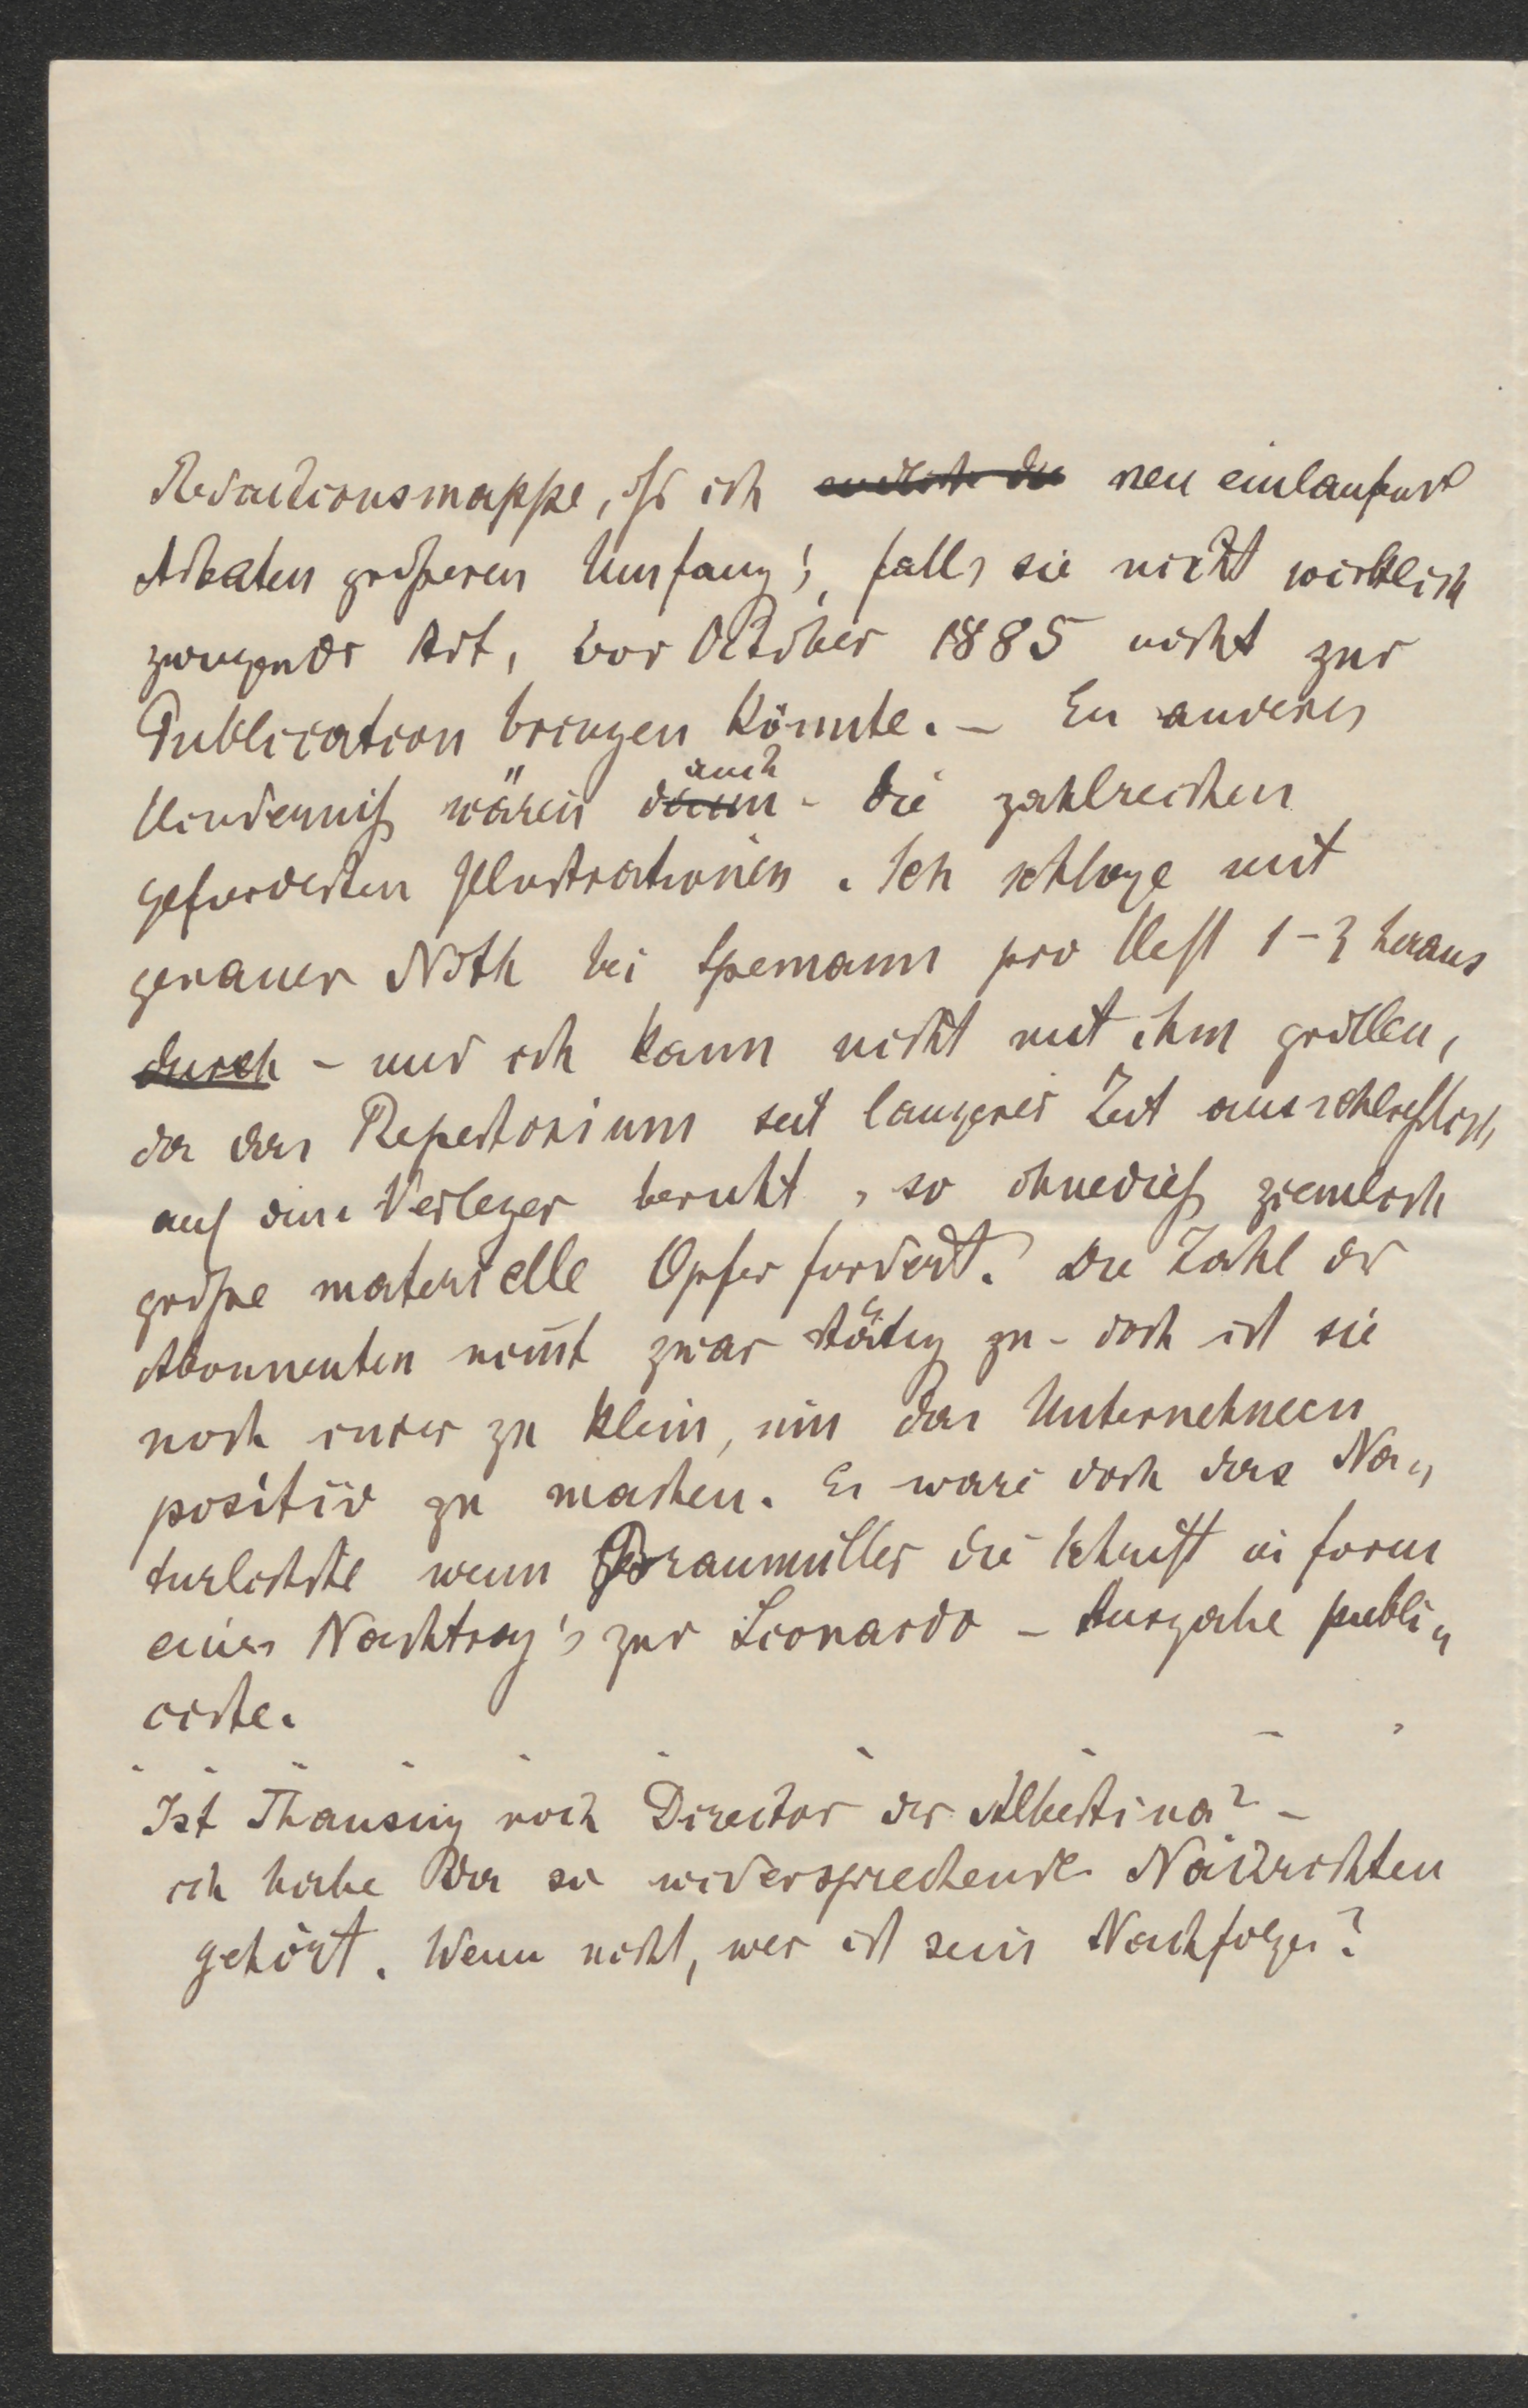 Redactionsmappe, daß ich neu einlaufende
Arbeiten größeren Umfang's, falls sie nicht wirklich
zwingender Art, vor October 1885 nicht zur
Publication bringen könnte. – Ein anderes
Hinderniß wären auch – die zahlreichen
geforderten Illustrationen. Ich schlage mit
genauer Noth bei Spemann pro Heft 1–3 heraus
durch – und ich kann nicht mit ihm grollen,
da das Repertorium seit langerer Zeit ausschließlich
auf dem Verleger beruht, so ohnedieß ziemlich
große materielle Opfer fordert. Die Zahl der
Abonnenten nim̅t zwar stätig zu – doch ist sie
noch im̅er zu klein, um das Unternehmen
positiv zu machen. Es ware doch das Na„
turlichste wenn Braumüller die Schrift in form
eines Nachtrag's zur Lionardo – Ausgabe publi„
cirte.
Ist Thausing noch Director der Albertina? –
ich habe da so widersprechende Nachrichten
gehört. Wenn nicht, wer ist sein Nachfolger?